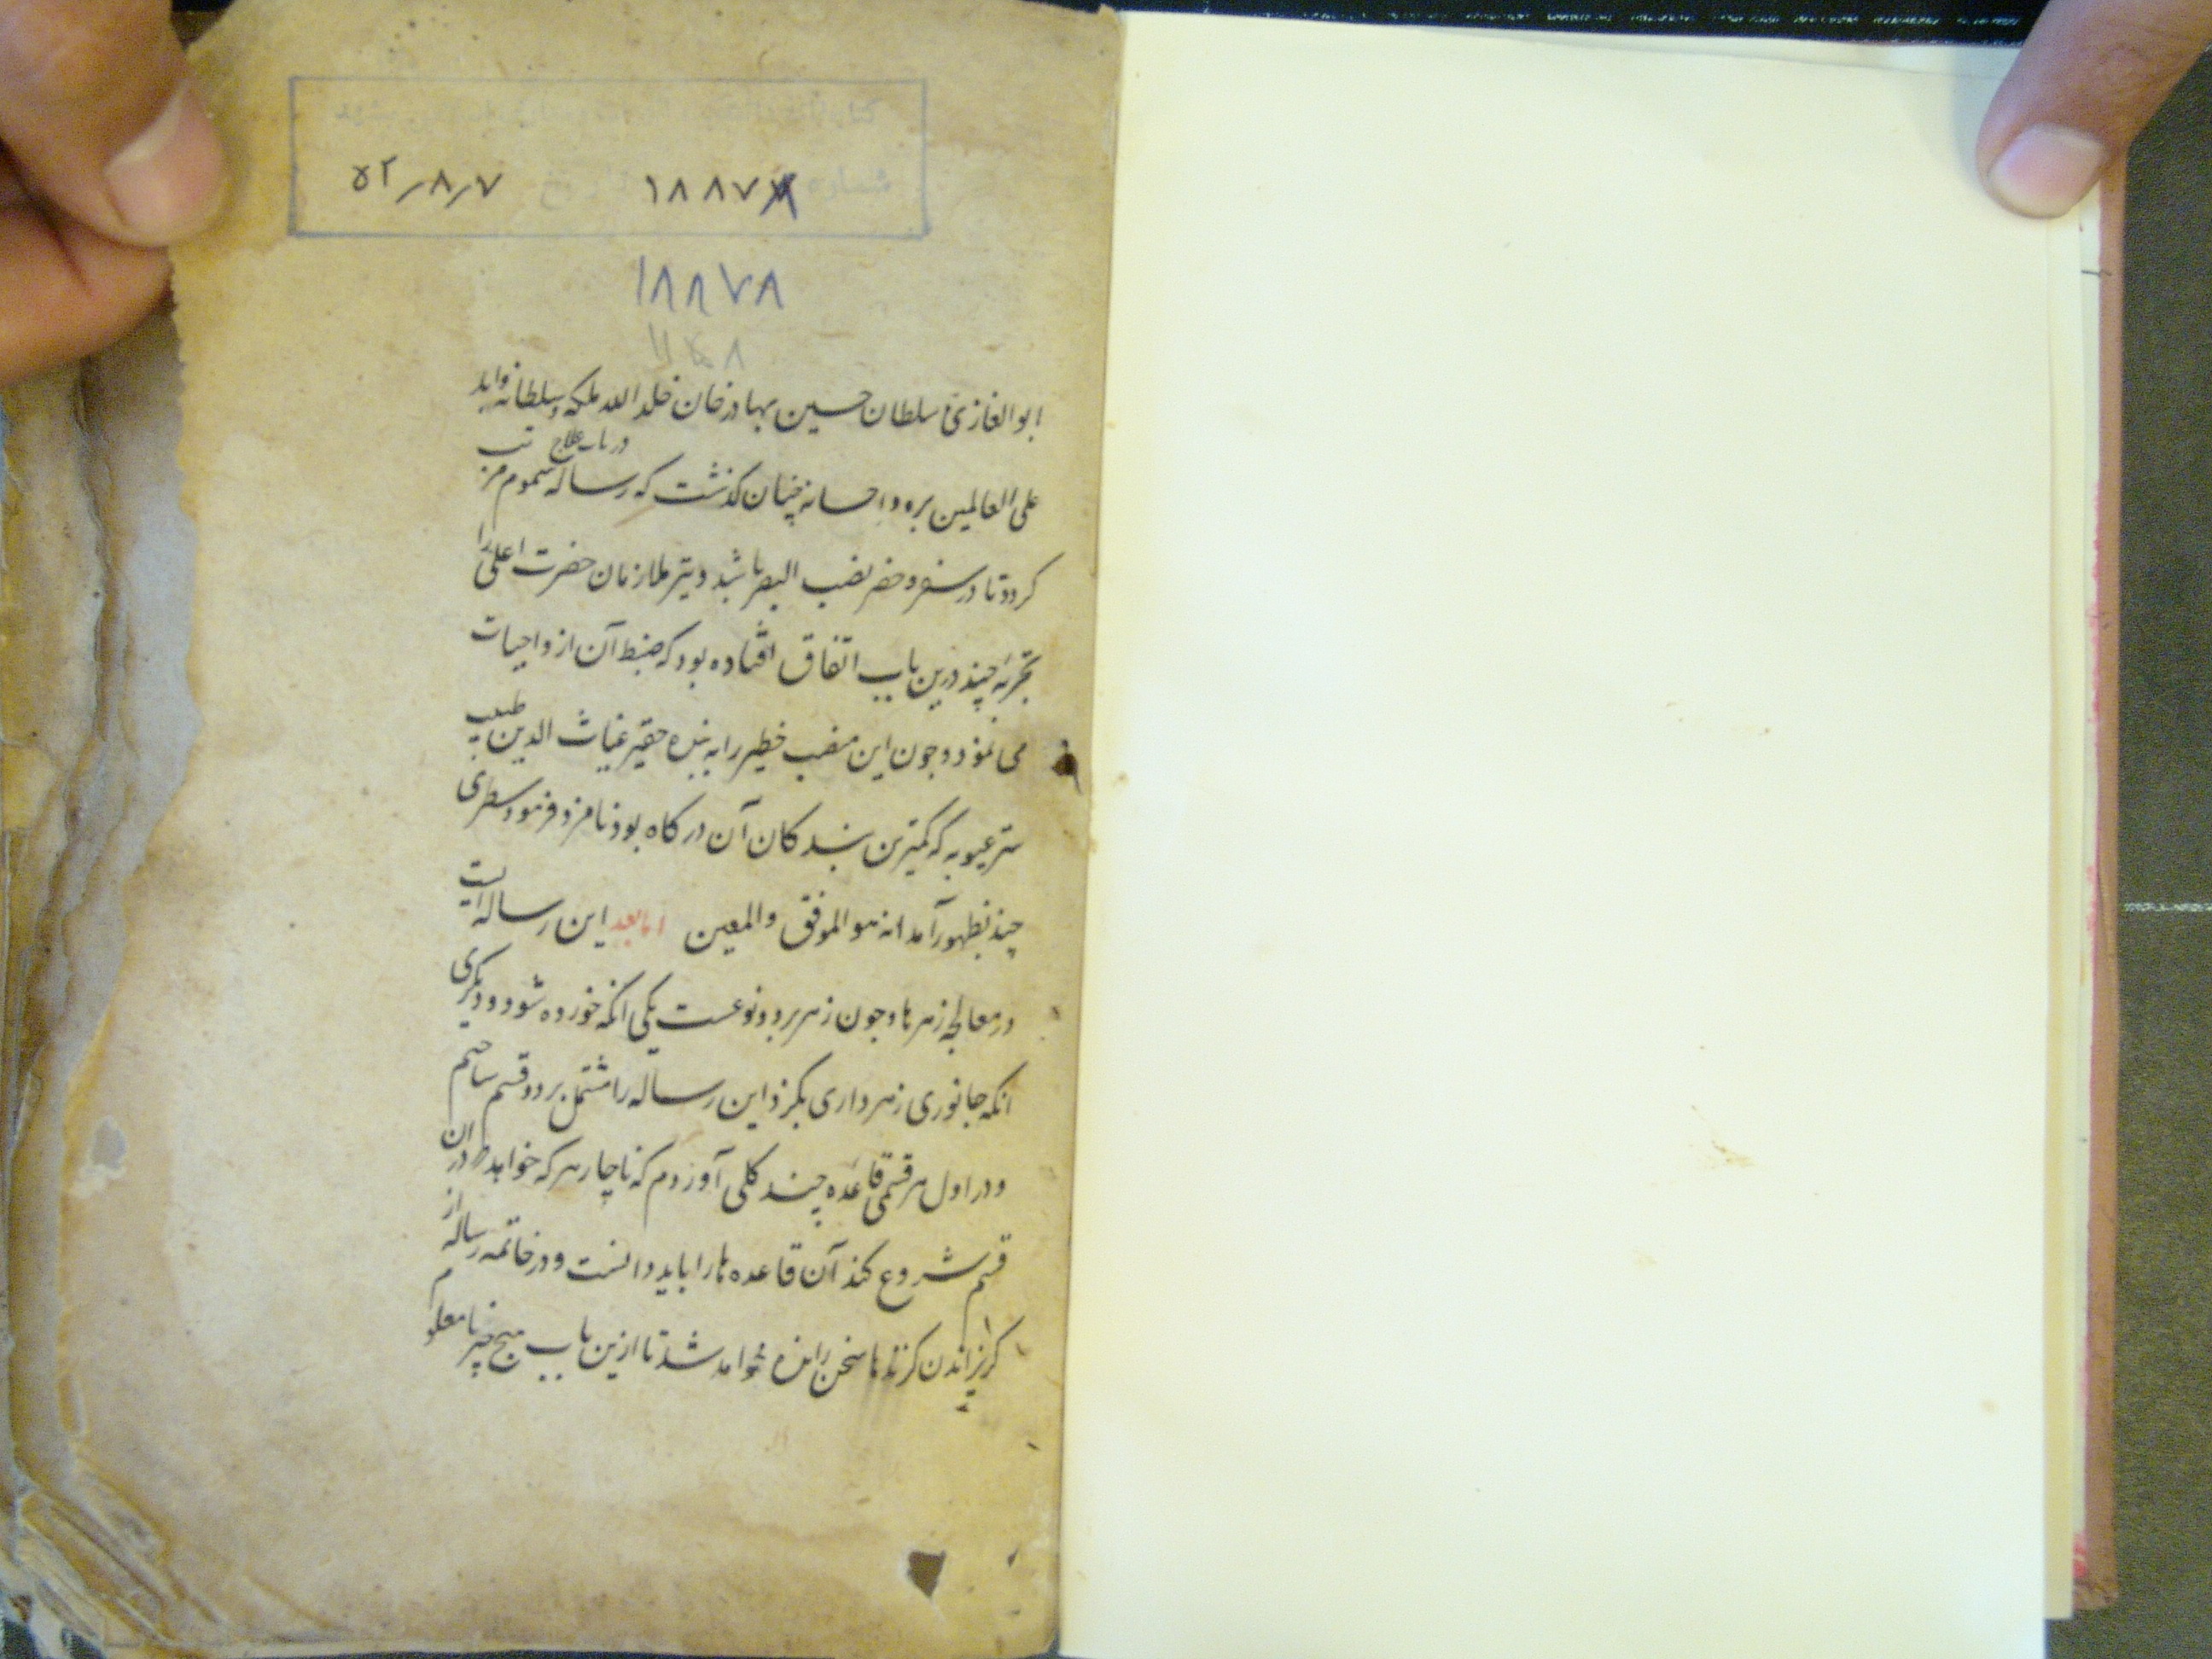 شماره
۱۸۸۷۷ ۵۲٫۸٫۷
۱۸۸۷۸
ابوالغازی سلطان حسین بهادر خان خلد الله ملکه و سلطانه و ابد
علی العالمین بره و احسانه چنان گذشت که رساله در باب علاج سموم مرتب
کردد تا در سفر و حضر نصب البصر باشد و نیز ملازمان حضرت اعلی را
تجربهٔ چند درین باب اتفاق افتاده بود که ضبط آن از واجبات
می نمود و چون این منصب خطیر را به بنده حقیر غیاث الدین طبیب
ستر عیوبه که کمترین بندکان آن درکاه بود نامزد فرمود سطری
چند بظهور آمد انه هو الموفق والمعین اما بعد این رساله ایست
در معالجه زهرها و چون زهر بر دو نوعست یکی انکه خورده شود و دیگری
انکه جانوری زهرداری بکزد این رساله را مشتمل بر دو قسم ساختم
و در اول هر قسمی قاعده چند کلی آوردم که ناچار هر که خواهد در ان
قسم شروع کند آن قاعده ها را باید دانست و در خاتمه رساله از
کریزاندن کزنده ها سخن رانده خواهد شد تا ازین باب هیچ چیز نامعلوم